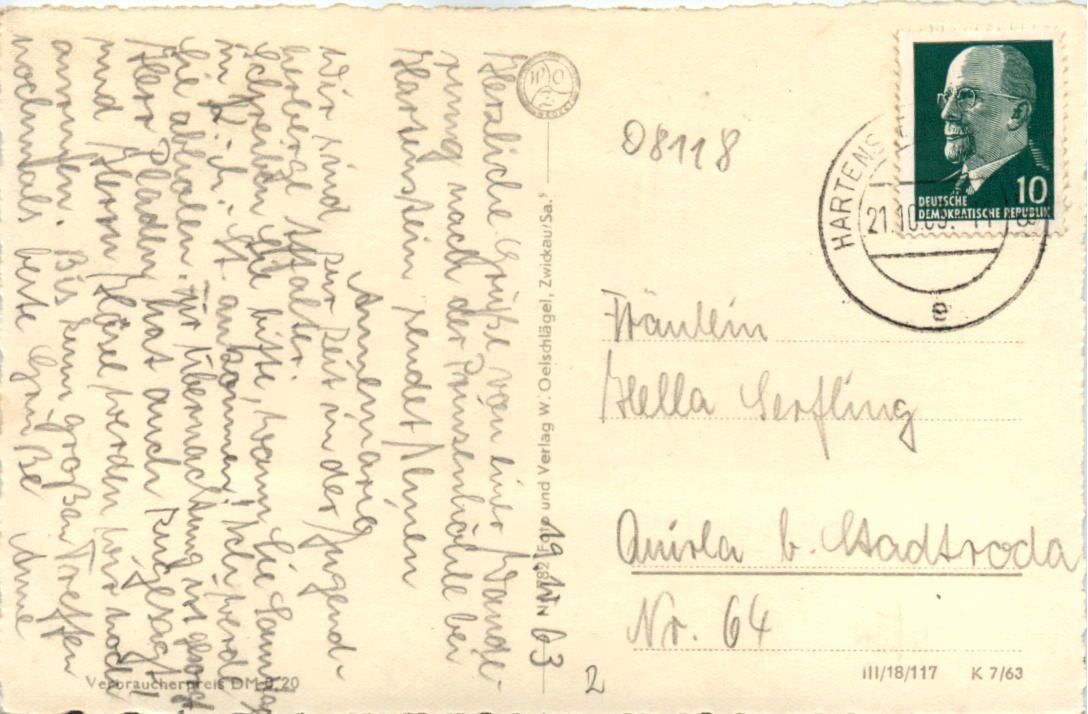 Herzliche Grüße von einer Wande-
rung nach der Prinzenhöhle bei
Hartenstein sendet Ihnen
Annemarie
Wir sind zur Zeit in der Jugend-
herberge
Schreiben Sie bitte, wann Sie
in ankommen, ich werde
Sie abholen. Für Übernachtung ist gesorgt
Herr hat auch zugesagt
und Herrn werden wir noch
anrufen. Bis zum großen Treffen
nochmals beste Grüße Anne
19. 10. 63
W O
Z
Foto und Verlag W. Oelschlägel, Zwickau/Sa.
Verbraucherpreis DM 0,20
08118
DEUTSCHE
DEMOKRATISCHE REPUBLIK
10
HARTENS
21.10.63
e
Fräulein
Hella Serfling
Quirla b. Stadtroda
Nr. 64
2
III/18/117 K 7/63